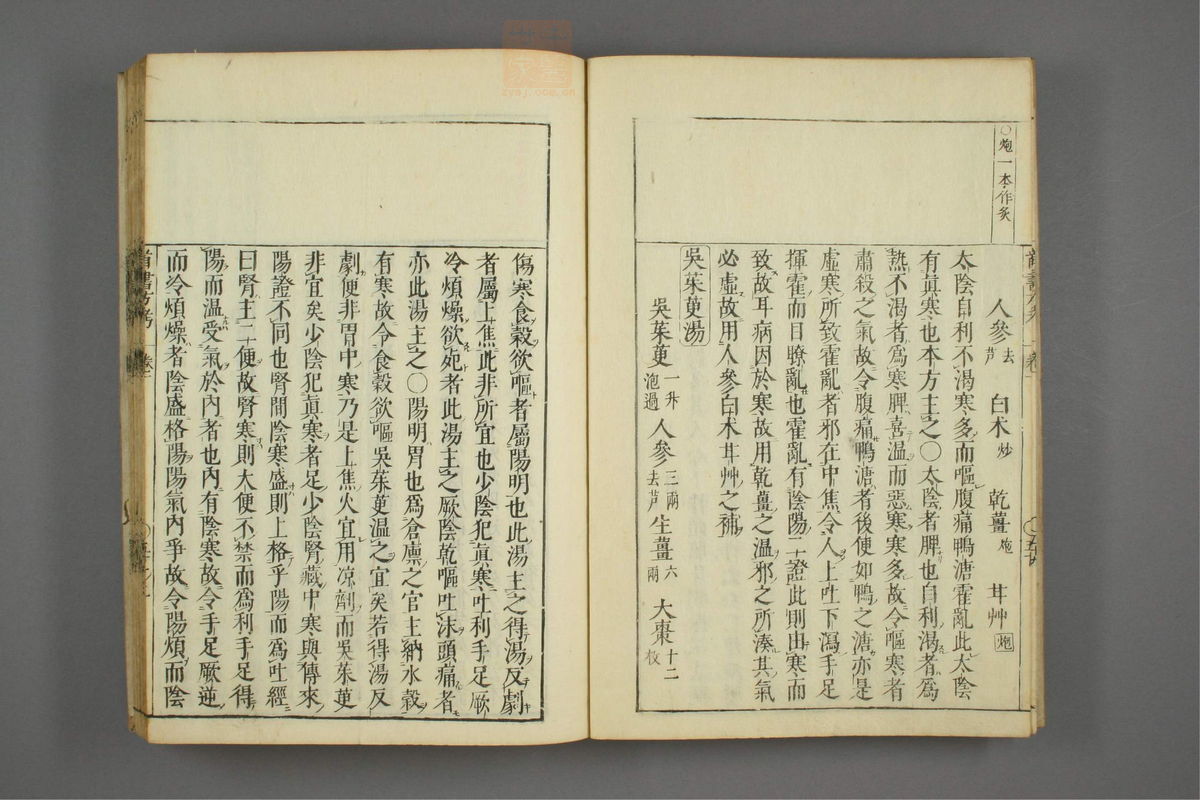 ○炮一本作炙
人參去芦 白术炒 乾薑炮 甘艸炮
太陰自利不渴寒多而嘔腹痛鴨溏霍亂此太陰
有眞寒也本方主之○太陰者脾也自利渴者爲
熱不渴者爲寒脾喜温而惡寒寒多故令嘔寒者
肅殺之氣故令腹痛鴨溏者後便如鴨之溏亦是
虛寒所致霍亂者邪在中焦令人上吐下瀉手足
揮霍而目瞭亂也霍亂有陰陽二證此則由寒而
致故耳病因於寒故用乾薑之温邪之所湊其氣
必虛故用人參白术甘艸之補
吳茱萸湯
吳茱萸一升泡過 人參三兩去芦 生薑六兩 大棗十二枚
傷寒食穀欲嘔者屬陽明也此湯主之得湯反劇
者屬上焦此非所宜也少陰犯眞寒吐利手足厥
冷煩燥欲死者此湯主之厥陰乾嘔吐沫頭痛者
亦此湯主之○陽明胃也爲倉廪之官主納水穀
有寒故令食穀欲嘔吳茱萸温之宜矣若得湯反
劇便非胃中寒乃是上焦火宜用凉劑而吳茱萸
非宜矣少陰犯眞寒者足少陰腎藏中寒與傳來
陽證不同也腎間陰寒盛則上格乎陽而爲吐經
曰腎主二便故腎寒則大便不禁而爲利手足得
陽而温受氣於內者也內有陰寒故令手足厥逆
而冷煩燥者陰盛格陽陽氣內爭故令陽煩而陰